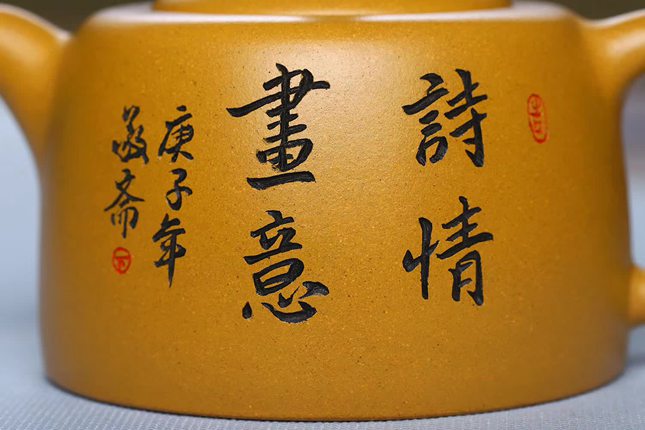 詩情
畫意
庚子年
敬斋